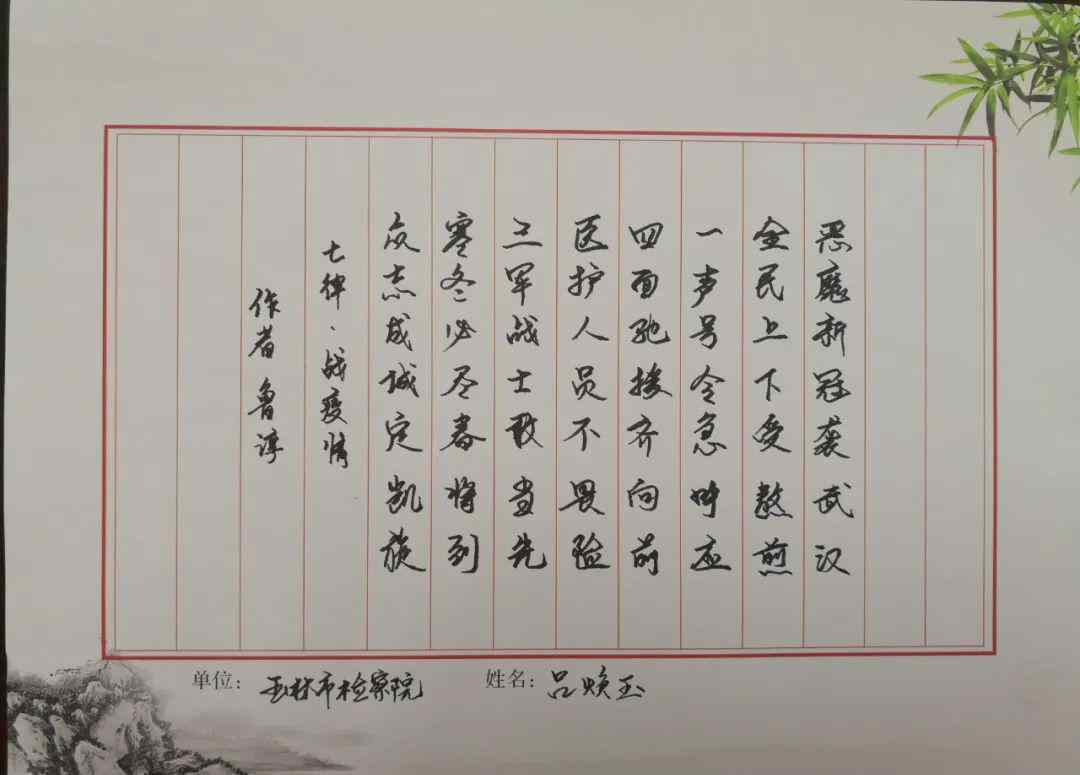 恶魔新冠袭武汉
全民上下受熬煎
一声号令急呼应
四面驰援齐向前
医护人员不畏险
三军战士敢当先
寒冬必尽春将到
众志成城定凯旋
七律·战疫情
作者鲁淳
单位：玉林市检察院
姓名：吕焕玉